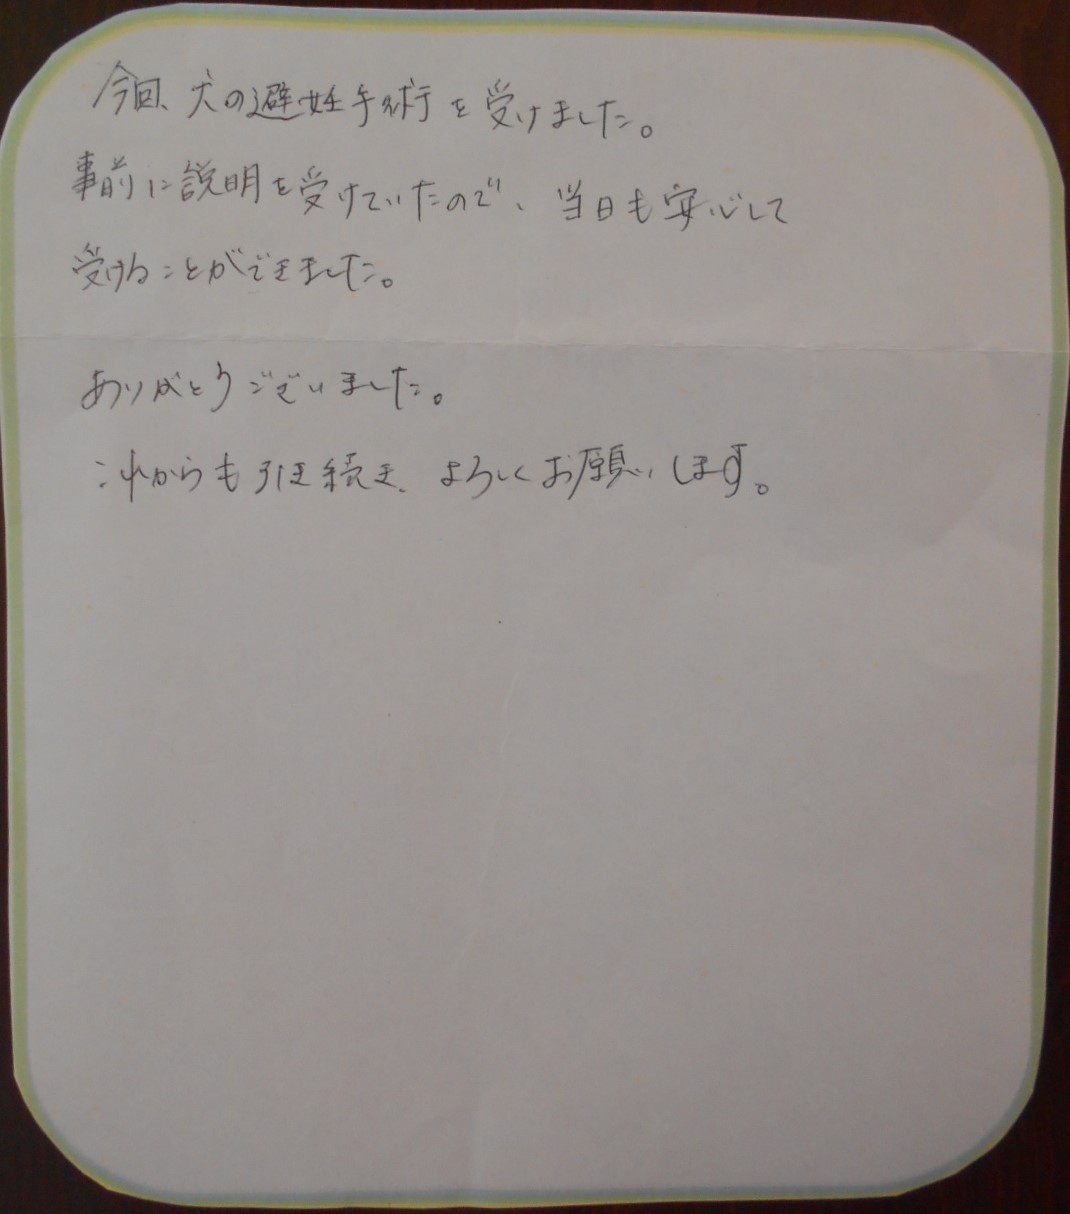 今回、犬の避妊手術を受けました。
事前に説明を受けていたので、当日も安心して
受けることができました。
ありがとうございました。
これからも引き続き、よろしくお願いします。